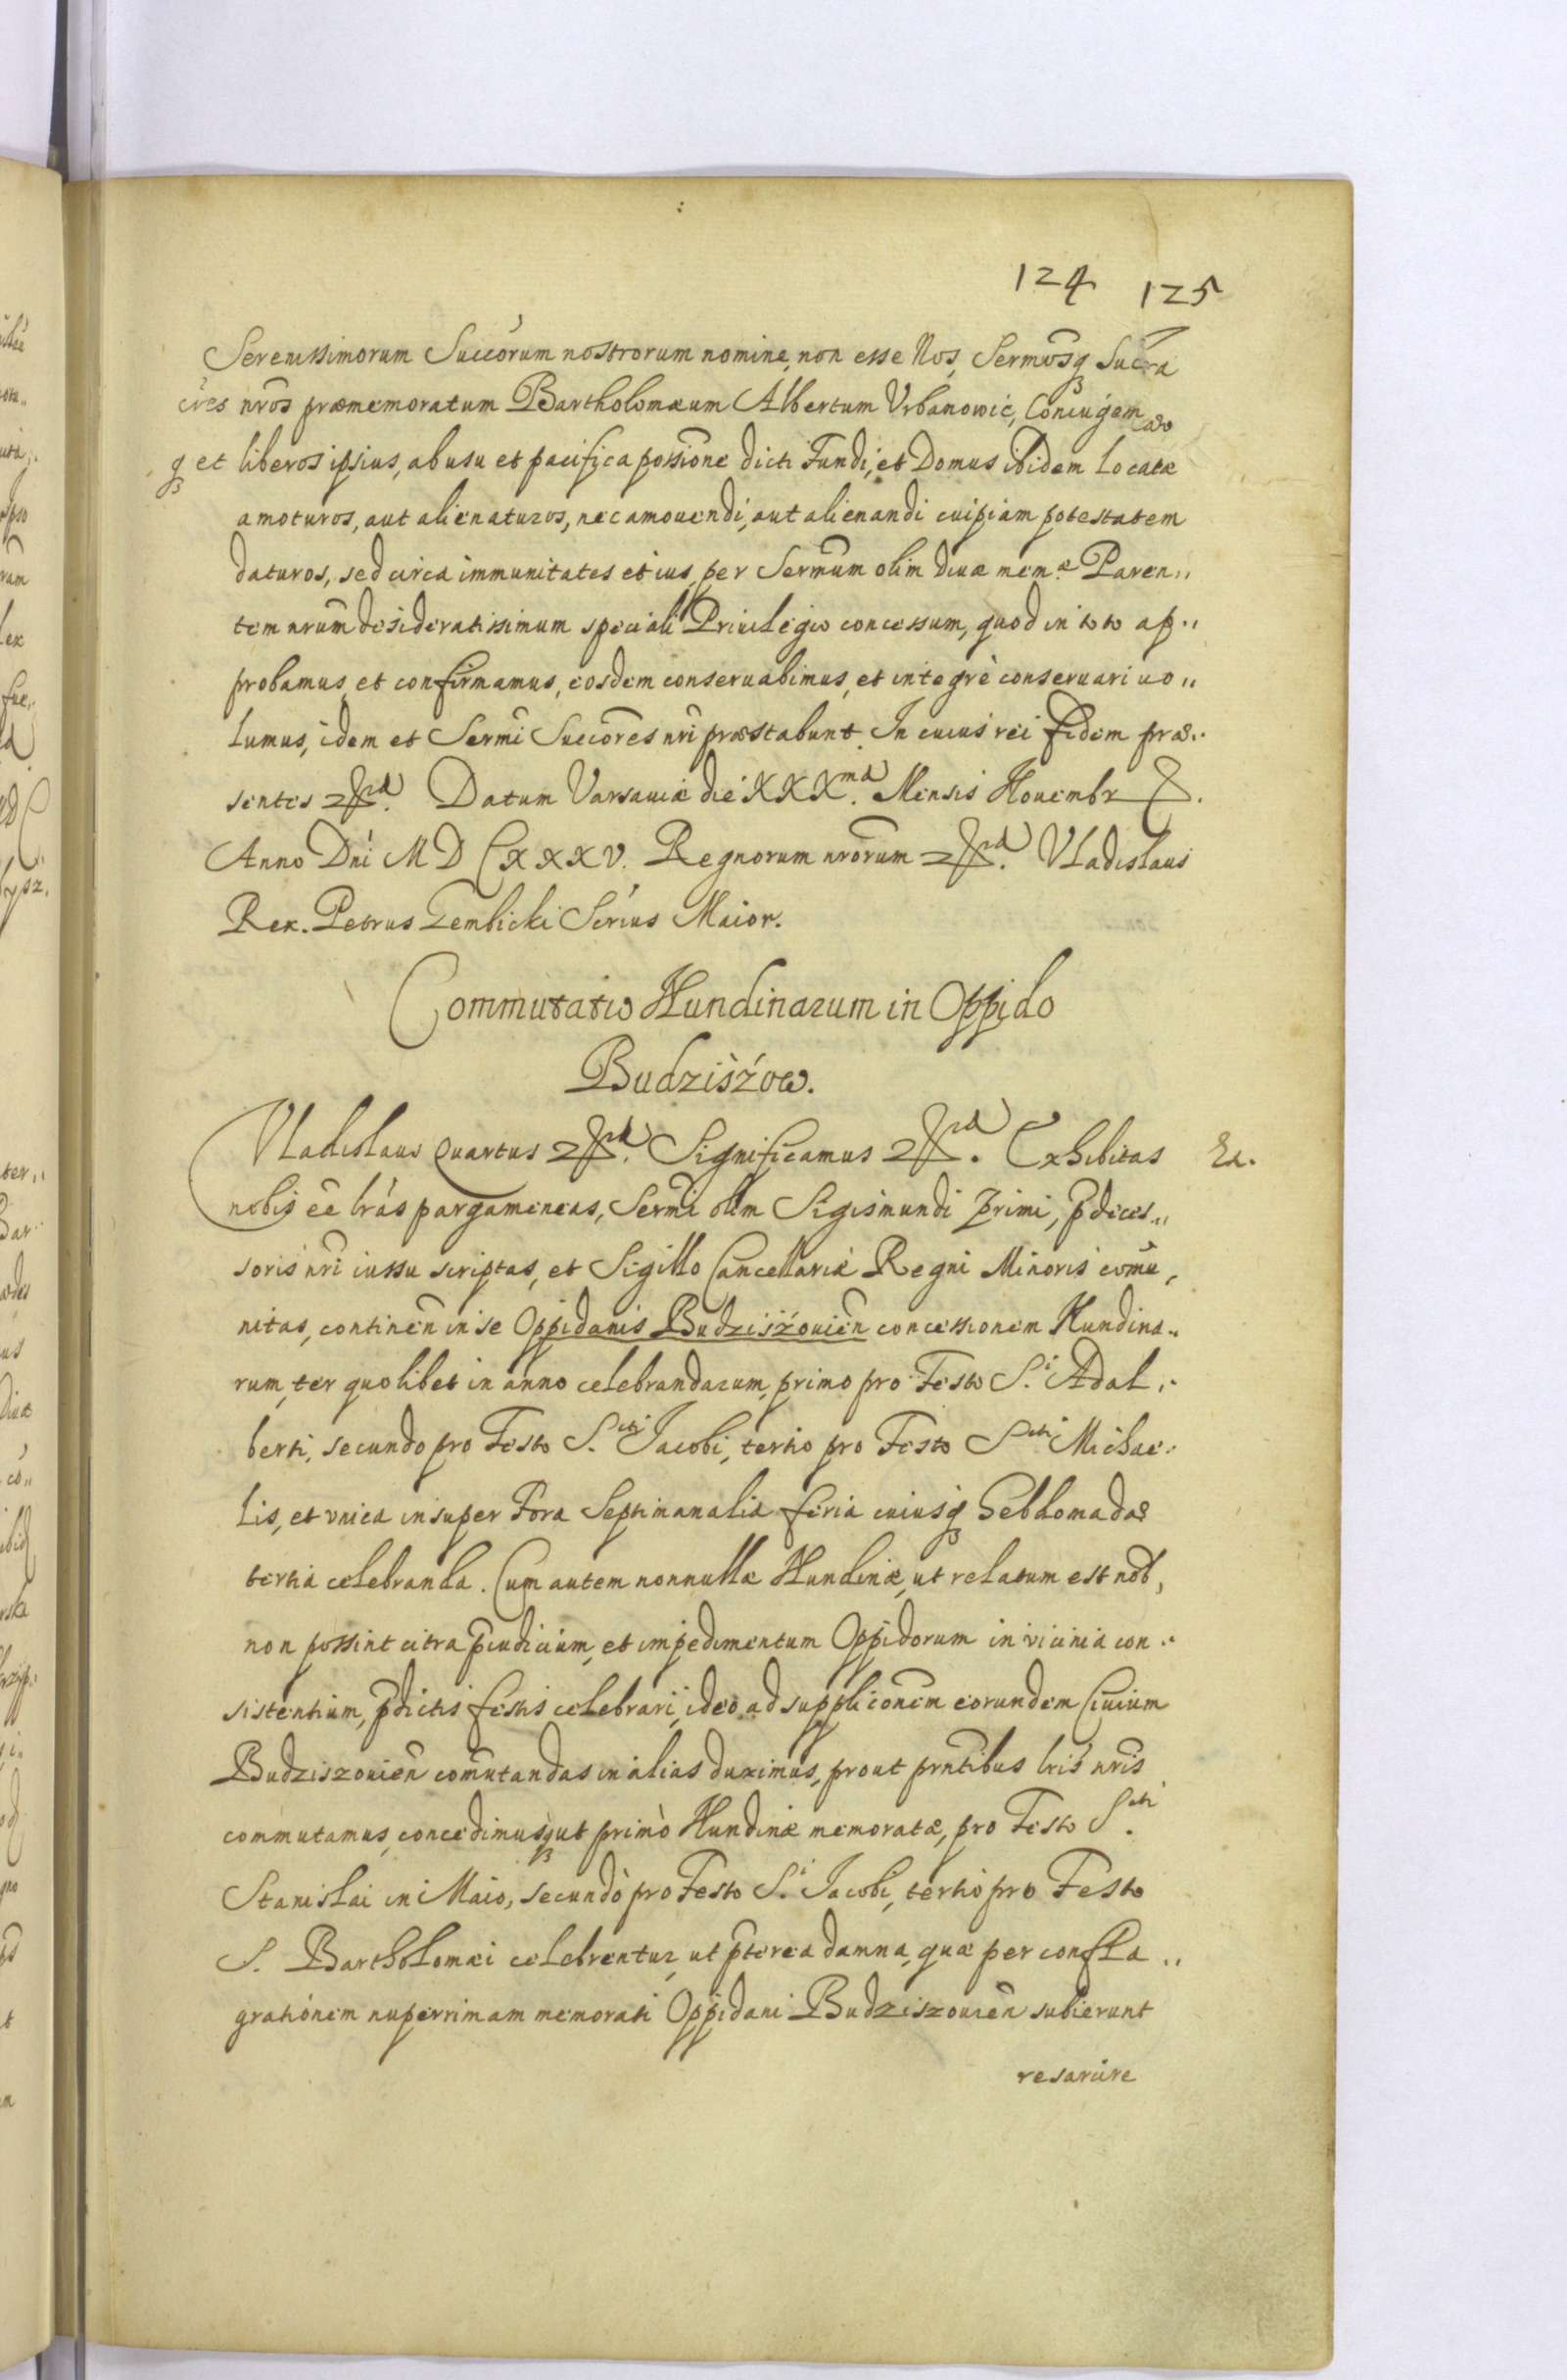 124 125
Serenissimorum Succorum nostrorum nomine, non esse Nos, Sermosq3 Succ
cres nros præmemoratum Bartholomæum Albertum Vrbanowic, Coniugem
q3 et liberos ipsius, ab usu et pacifica possione dicti Fundi, et Domus ibidem Locatæ
amoturos, aut alienaturos, nec amouendi, aut alienandi cuipiam potestatem
daturos, sed circa immunitates et ius, per Sermum olim diuæ mem.æ Paren,,
tem nrum desideratissimum speciali Priuilegio concessum, quod in toto ap,,
probamus, et confirmamus, eosdem conseruabimus, et integrè conseruari uo,,
lumus, idem et Sermi Succores nri præstabunt. In cuius rei fidem præ,,
sentes Datum Varsauiæ die XXX.ma Mensis Nouembr
Anno Dni M D CXXXV. Regnorum nrorum Vladislaus
Rex. Petrus Gembicki Scrius Maior.
Commutatio Nundinarum in Oppido
Budziszow.
Vladislaus Quartus Significamus Exhibitas
nobis eē lras pargameneas, Sermi olim Sigismundi Primi, pdeces,,
soris nri iussu scriptas, et Sigillo Cancellariæ Regni Minoris comu,
nitas, continen in se Oppidanis Budziszouien concessionem Nundina,,
rum, ter quolibet in anno celebrandarum, primo pro Festo S.i Adal,,
berti, secundo pro Festo S.cti Jacobi, tertio pro Festo Scti Michae,,
lis, et vnica insuper Fora Septimanalia feria cuiusq3 hebdomadæ
tertia celebranda. Cum autem nonnullæ Nundinæ, ut relatum est nob,
non possint citra piudicium, et impedimentum Oppidorum in vicinia con,,
sistentium, pdictis festis celebrari, ideo ad suppliconem eorundem Ciuium
Budziszouien comutandas in alias duximus, prout prntibus lris nris
commutamus, concedimusq3 ut primò Nundinæ memoratæ, pro Festo S.cti
Stanislai in Maio, secundò pro Festo S.i Jacobi, tertio pro Festo
S. Bartholomæi celebrentur, ut pterea damna, quæ per confla,,
grationem nuperrimam memorati Oppidani Budziszouien subierunt
resarcire